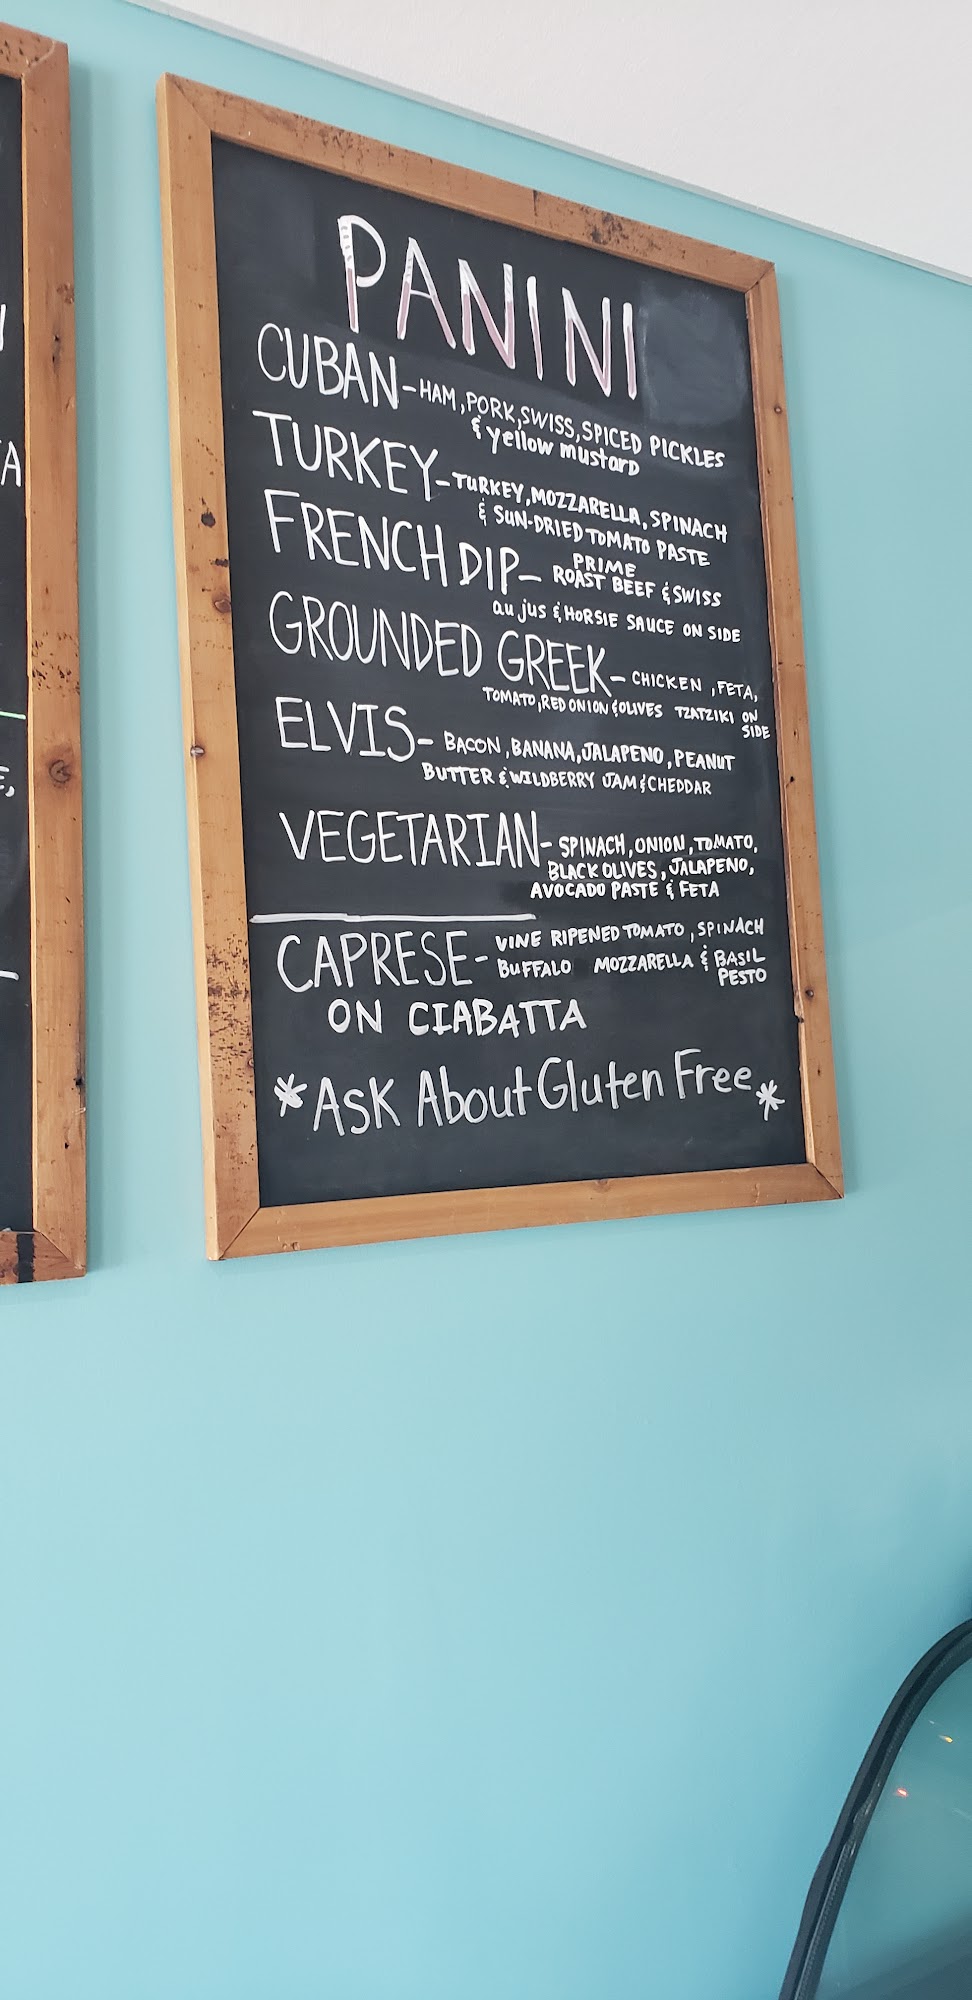 PANINI
CUBAN - HAM, PORK, SWISS, SPICED PICKLES
& yellow mustard
TURKEY - TURKEY, MOZZARELLA, SPINACH
& SUN-DRIED TOMATO PASTE
FRENCH DIP - PRIME
ROAST BEEF & SWISS
au jus & HORSIE SAUCE ON SIDE
GROUNDED GREEK - CHICKEN, FETA,
TOMATO, RED ONION & OLIVES TZATZIKI ON
SIDE
ELVIS - BACON, BANANA, JALAPENO, PEANUT
BUTTER & WILDBERRY JAM & CHEDDAR
VEGETARIAN - SPINACH, ONION, TOMATO,
BLACK OLIVES, JALAPENO,
AVOCADO PASTE & FETA
CAPRESE - VINE RIPENED TOMATO, SPINACH
BUFFALO MOZZARELLA & BASIL
PESTO
ON CIABATTA
*ASK About Gluten Free*